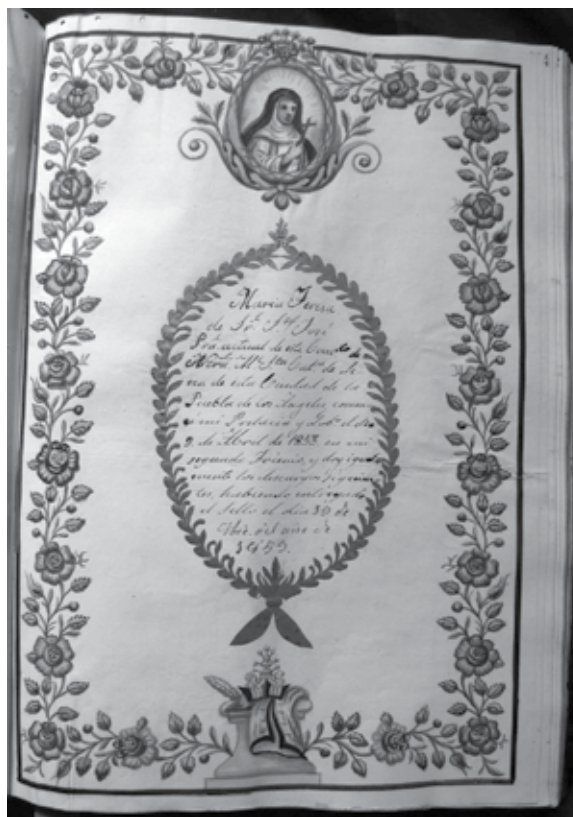 María Teresa
de Sr. Sn. José
Pra. actual de este Convto. de
Ntra. Me. Sta. Cata. de Se
na de esta Ciudad de la
Puebla de los Angeles, comen
sé mi Prelacia y el dia
9. de Abril de 1853 en mi
segundo Trienio, y doy igual
mente los descargos siguien
tes, habiendo entregado
el Sello el dia 30 de
del año de